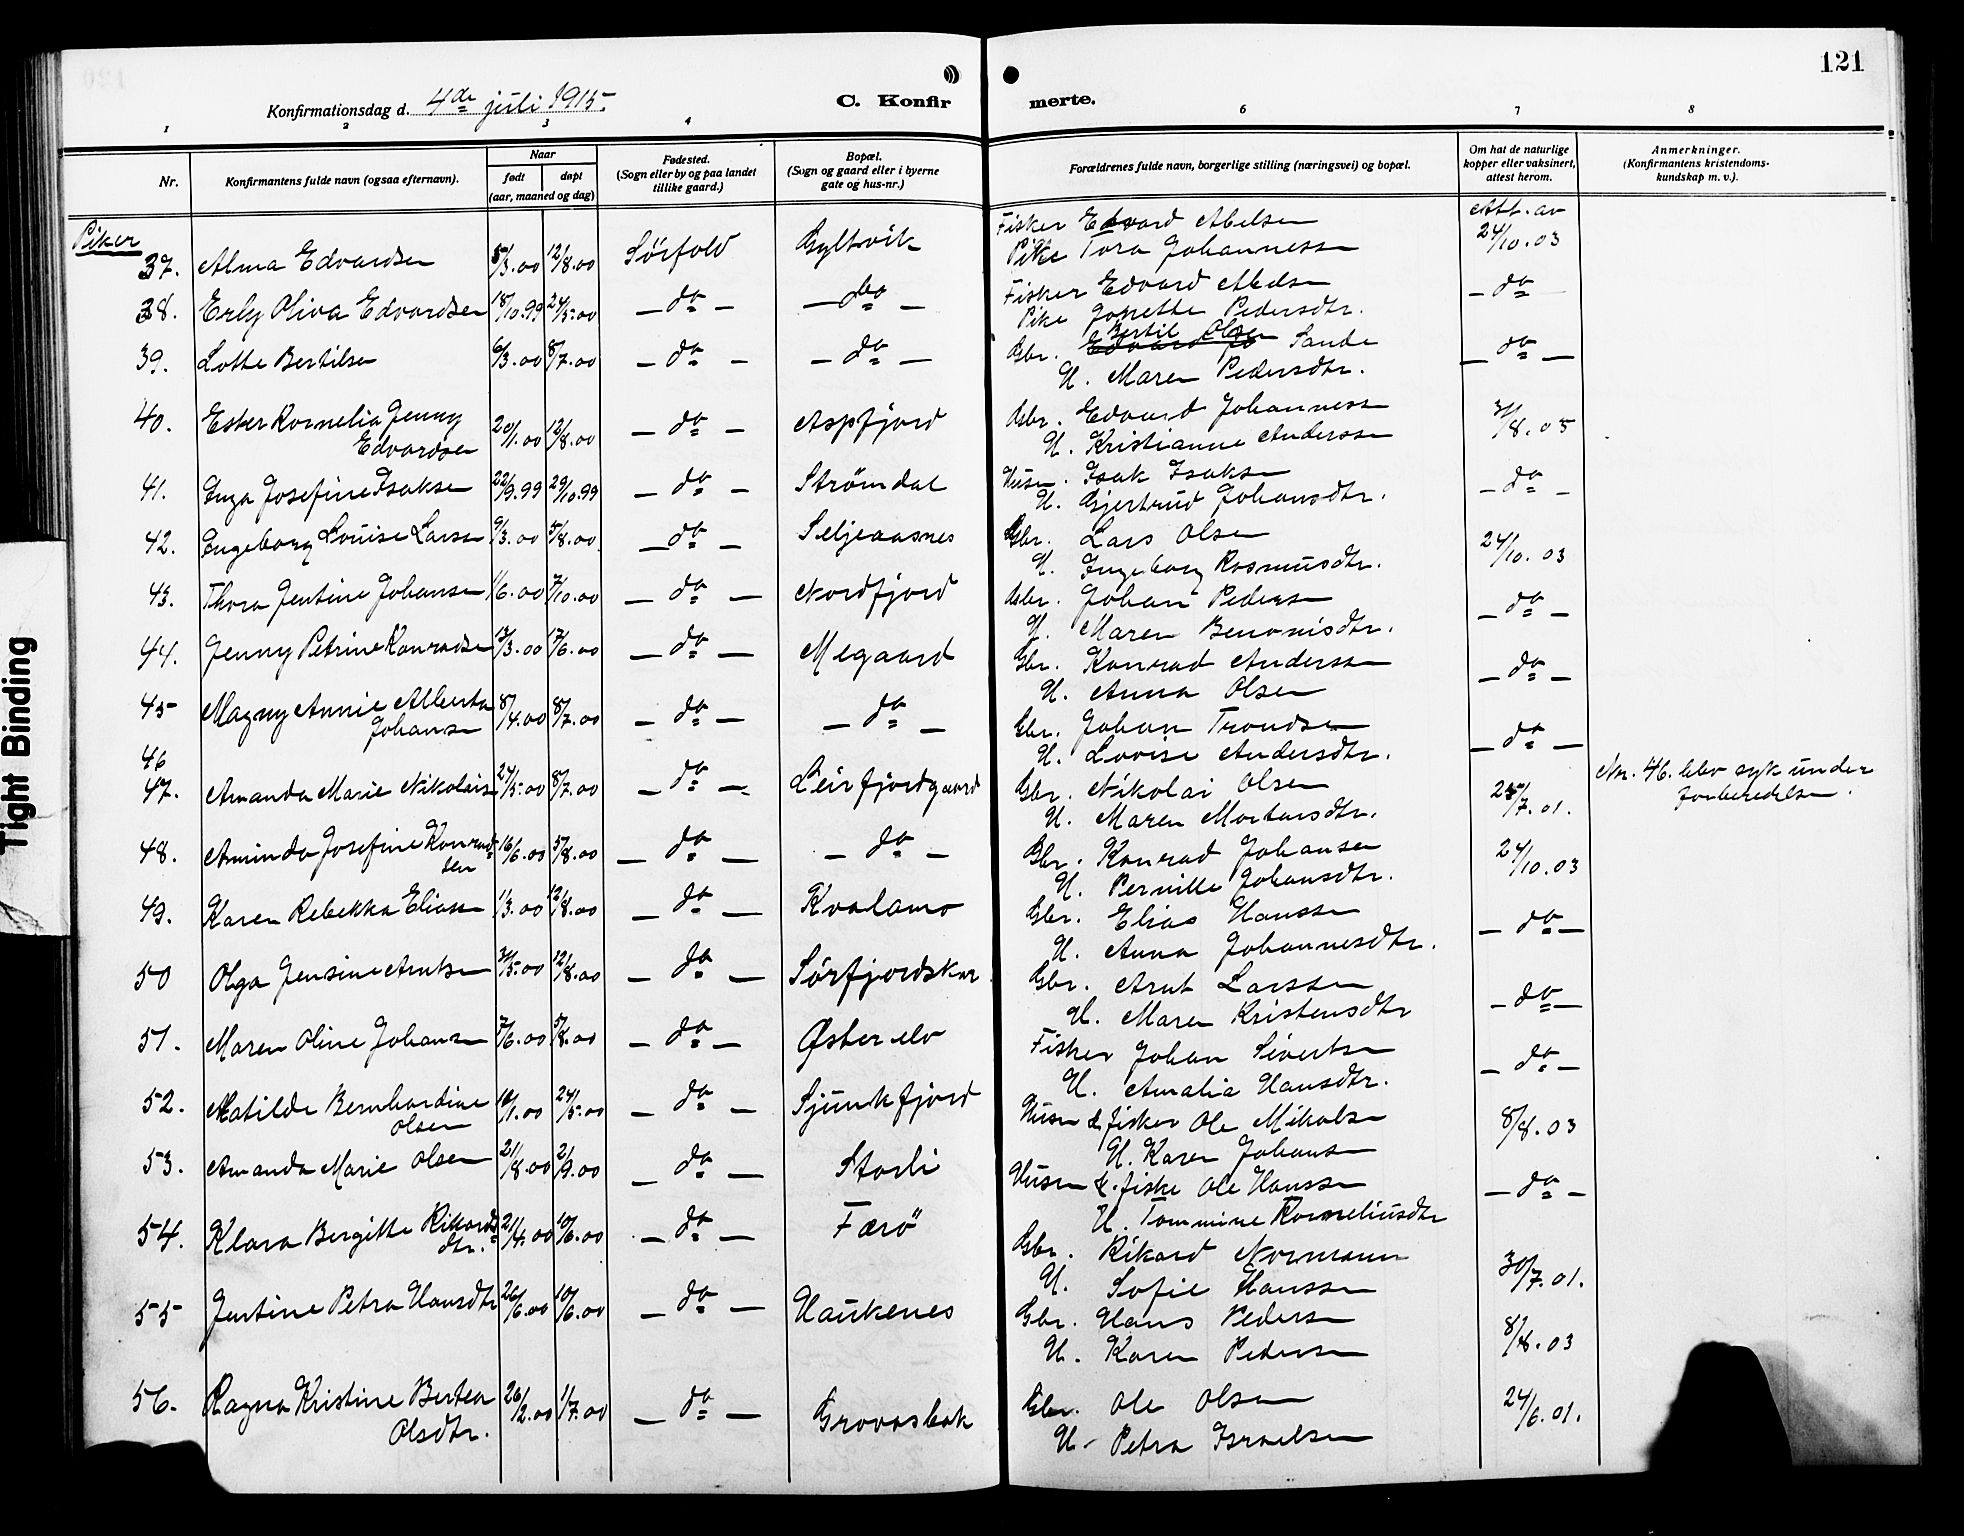 121
Konfirmationsdag d. 4de juli 1915.
C. Konfirmerte.
1 2 3 4 6 7 8
Nr.
Konfirmantens fulde navn (ogsaa efternavn).
Naar
født døpt
(aar, maaned og dag)
Fødested.
(Sogn eller by og paa landet
tillike gaard.)
Bopæl.
(Sogn og gaard eller i byerne
gate og hus-nr.)
Forældrenes fulde navn, borgerlige stilling (næringsvei) og bopæl.
Om hat de naturlige
kopper eller vaksinert,
attest herom.
Anmerkninger.
(Konfirmantens kristendoms-
kundskap m. v.).
Piker
37. Alma Edvardsen 5/3.00 12/8.00 Sörfold Gyltvik Fisker Edvard Abelsen Att. av
Pike Tora Johannessen 24/10.03
38. Erly Oliva Edvardsen 18/10.99 24/5.00 - do - - do - Fisker Edvard Abelsen - do
Pike Jonette Pedersdtr.
39. Lotte Bertilsen 6/3.00 8/7.00 - do - - do - Gbr. Bertil Olsen Sande - do -
H. Maren Pedersdtr.
40. Ester Kornelia Jenny 20/1.00 12/8.00 - do - Aspfjord Gbr. Edvard Johannessen 31/8.05
Edvardsen H. Kristianne Anderssen
41. Inga Josefine Isaksen 22/9.99 29/10.99 - do - Strømdal Husm. Isak Isaksen - do -
H. Gjertrud Johansdtr.
42. Ingeborg Louise Larssen 9/3.00 5/8.00 - do - Seljeaasnes Gbr. Lars Olsen 24/10.03
H. Ingeborg Rasmusdtr.
43. Thora Jentine Johansen 1/6.00 7/10.00 - do - Nordfjord Gbr. Johan Pedersen - do -
H. Maren Benonisdtr.
44. Jenny Petrine Konradsen 13/3.00 17/6.00 - do - Megaard Gbr. Konrad Anderssen - do -
H. Anna Olsen
45 Magny Annie Alberta 8/4.00 8/7.00 - do - - do - Gbr. Johan Trondsen - do -
Johansen H. Lovise Andersdtr.
46 Nr. 46. blev syk under
forberedelsen.
47. Amanda Marie Nikolaisen 24/5.00 8/7.00 - do - Leirfjordgaard Gbr. Nikolai Olsen 25/7.01.
H. Maren Mortensdtr.
48. Aminda Josefine Konrad- 16/6.00 5/8.00 - do - - do - Gbr. Konrad Johansen 24/10.03
sen H. Pernille Johansdtr.
49. Karen Rebekka Eliassen 1/3.00 12/8.00 - do - Kvalamo Gbr. Elias Hanssen - do -
H. Anna Johannesdtr.
50 Olga Jensine Arntsen 31/5.00 12/8.00 - do - Sörfjordskar Gbr. Arnt Larssen - do -
H. Maren Kristensdtr
51. Maren Oline Johansen 7/6.00 5/8.00 - do - Øster elv Fisker Johan Sivertsen - do -
H. Amalia Hansdtr.
52. Matilde Bernhardine 16/1.00 24/5.00 - do - Sjunkfjord Husm & fisker Ole Mikalsen 8/8.03
Olsen H. Karen Johansen
53. Amanda Marie Olsen 21/8.00 2/9.00 - do - Storli Husm & fiske Ole Hanssen - do -
H. Tommine Korneliusdtr
54. Klara Bergitte Rikards- 2/4.00 10/6.00 - do - Færö Gbr. Rikard Normann 30/7.01.
dtr. H. Sofie Hanssen
55 Jentine Petra Hansdtr 26/6.00 10/6.00 - do - Haukenes Gbr. Hans Pedersen 8/8.03
H. Karen Pedersen
56. Ragna Kristine Bertea 26/2.00 1/7.00 - do - Grovasbak Gbr. Ole Olsen 24/6.01.
Olsdtr. H. Petra Israelsen
Tight Binding